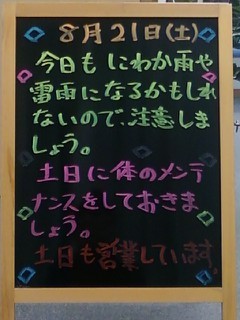 8月21日(土)
今日もにわか雨や
雷雨になるかもしれ
ないので、注意しま
しょう。
土日に体のメンテ
ナンスをしておきま
しょう。
土日も営業しています。